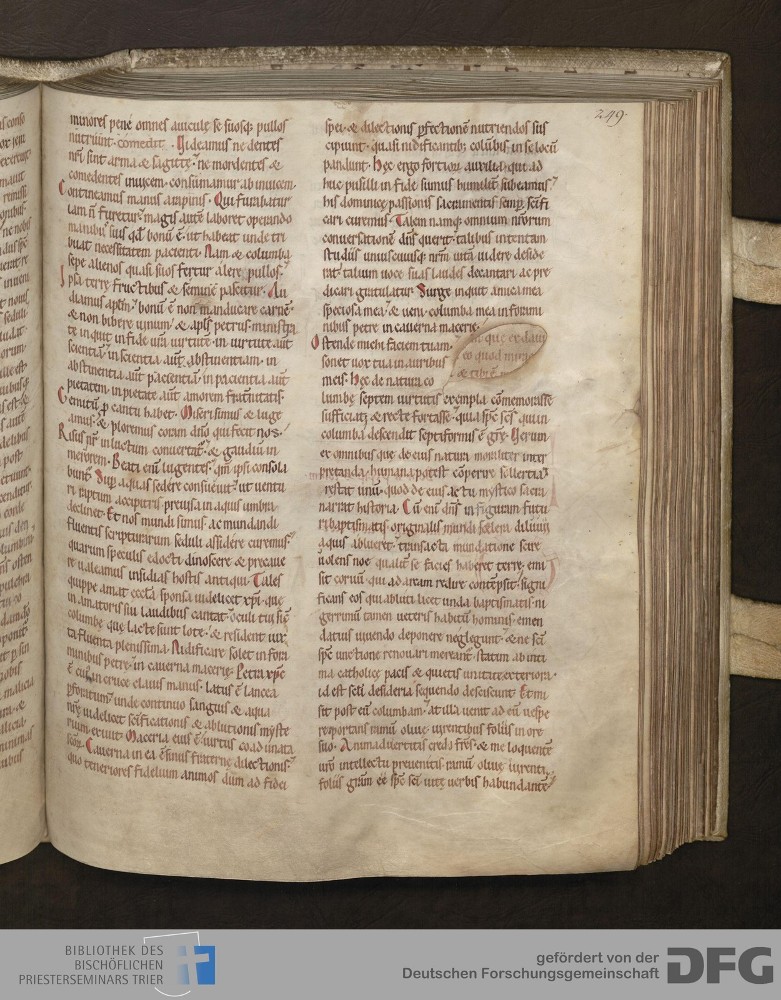 249.
minores pene omnes auiculę se suosq; pullos
nutriunt. comedit. Uideamus ne dentes
nr̄i sint arma & sagittę. ne mordentes &
comedentes inuicem. consumamur ab inuicem.
Contineamus manus a rapinis. Qui furabatur
iam n̄ furetur. magis autē laboret operando
manibus suis qd̄ bonū ē. ut habeat unde tri
buat necessitatem pacienti. Nam & columba
sepe alienos quasi suos fertur alere pullos.
Ipsa terrę fructibus & semine pascitur. Au
diamus apl̄m. bonū ē non manducare carnē.
& non bibere uinum. & apl̄s petrus. ministra
te inquit in fide ur̄a uirtutē. in uirtute aut̄
scientiā. in scientia aut̄ abstinentiam. in
abstinentia aut̄ pacientiā. in pacientia aut̄
pietatem. in pietate aut̄ amorem fraternitatis.
Gemitū p̄ cantu habet. Miseri simus & luge
amus. & ploremus coram dn̄o qui fecit nos.
Risus nr̄ in luctum conuertat̄. & gaudiū in
merorem. Beati eni lugentes. qm̄ ipsi consola
bunt̄. Sup aquas sedere consueuit. ut uentu
ri raptum accipitris preuisa in aquis umbra
declinet. Et nos mundi simus ac mundandi
fluentis scripturarum seduli assidere curemus.
quarum speculis edocti dinoscere & precaue
re ualeamus insidias hostis antiqui. Tales
quippe amat ecclā sponsa uidelicet xpi. que
in amatoris sui laudibus cantat. oculi tui sic̄
columbę que lacte sunt lotę. & resident iux
ta fluenta plenissima. Nidificare solet in fora
minibus petrę. in cauerna macerię. Petra xpc̄
ē cuius in cruce clauis manus. latus ē lancea
pforatum. unde continuo sanguis & aqua
nr̄ę uidelicet scīficationis & ablutionis myste
rium exiuit. Maceria eius ē uirtus coadunata
scōr̄. Cauerna in ea ē sinus fraternę dilectionis.
quo teneriores fidelium animos dum ad fidei
spei. & dilectionis pfectionē nutriendos sus
cipiunt. quasi nidificantib; colūbis in se locū
pandunt. Hęc ergo fortior auxilia. qui ad
huc pusilli in fide sumus humilit̄ subeamus.
his dominicę passionis sacramentis semp scīfi
cari curemus. Talem namq; omnium nr̄orum
conuersationē dn̄s querit. talibus intentam
studiis uniuscuiusq; nrm̄ uitā uidere deside
rat. talium uoce suas laudes decantari ac pre
dicari gratulatur. Surge inquit amica mea
speciosa mea. & ueni. columba mea in forami
nibus petrę in cauerna macerię.
Ostende michi faciem tuam.
sonet uox tua in auribus
meis. Hęc de natura co
lumbę septem uirtutis exempla cōmemorasse
sufficiat. & recte fortasse. quia spc̄ scs̄ qui in
columba descendit septiformis ē gr̄e. Uerum
ex omnibus que de eius natura moraliter inter
pretanda humana potest cōperire sollertia.
restat unū. quod de eius actu mystico sacra
narrat historia. Cū eni dn̄s in figuram futu
ri baptismatis originalis mundi scelera diluuii
aquis ablueret. transacta mundatione scire
uolens noe qualit̄ se facies haberet terrę. emi
sit coruū. qui ad arcam redire contepsit. signi
ficans eos qui abluti licet unda baptismatis. ni
gerrimū tamen ueteris habitū hominis emen
datius uiuendo deponere neglegunt. & ne scī
spc̄ unctione renouari mereant̄. statum ab inti
ma catholicę pacis & quietis unitate exteriora.
id est scl̄i desideria sequendo desciscunt. Et mi
sit post eū columbam. at illa uenit ad eū uespe
reportans ramū oliuę uirentibus foliis in ore
suo. Animaduertitis credo frs̄. & me loquentē
ur̄o intellectu preuenitis. ramū oliuę uirenti,
foliis gram̄ ee spc̄ scī uitę uerbis habundantē
BIBLIOTHEK DES
BISCHÖFLICHEN
PRIESTERSEMINARS TRIER
gefördert von der
Deutschen Forschungsgemeinschaft
DFG